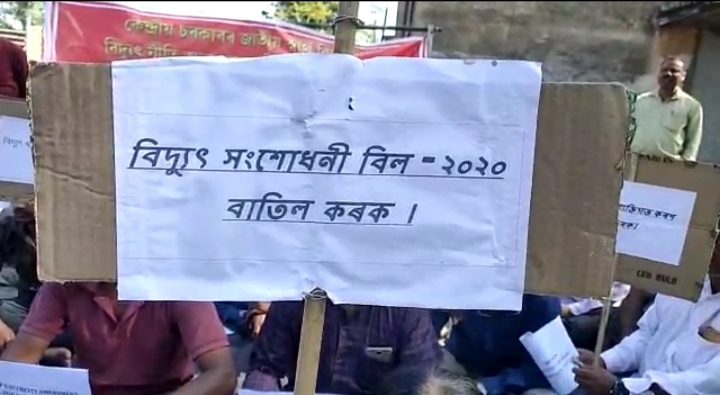 কেন্দ্ৰীয় চৰকাৰৰ জাতীয়
বিদ্যুৎ নীতি
বিদ্যুৎ
বিদ্যুৎ সংশোধনী বিল - ২০২০
বাতিল কৰক ।
LED BULB